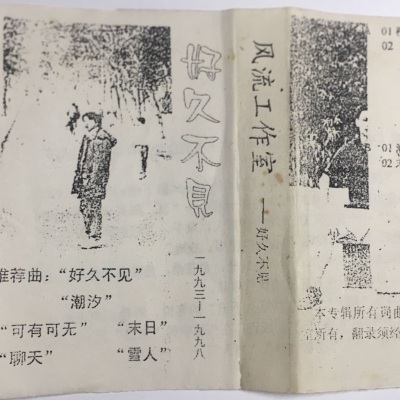 好久不见
一九九三-一九九八
推荐曲：“好久不见”
“潮汐”
“可有可无” “末日”
“聊天” “雪人”
风流工作室 — 好久不见
01
02
01
02
本专辑所有词曲
所有，翻录须经